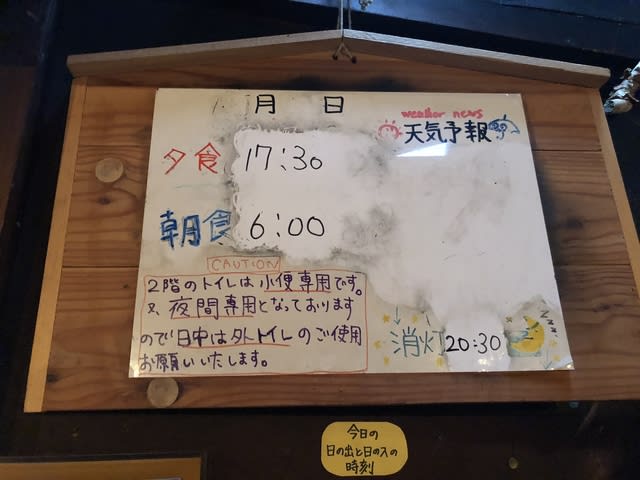 月 日
weather news
天気予報
夕食 17:30
朝食 6:00
CAUTION
2階のトイレは小便専用です。
又、夜間専用となっております
ので日中は外トイレのご使用
お願いいたします。
消灯 20:30
今日の
日の出と日の入の
時刻